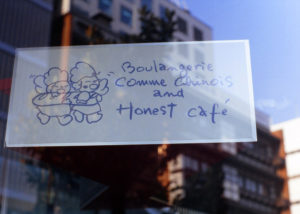 Boulangerie
Comme Chinois
and
Honest café